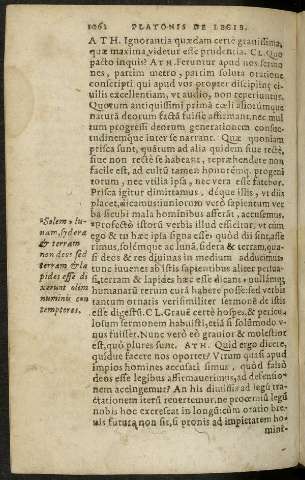 1062 PLATONIS DE LEGIB.
ATH. Ignorantia quædam certè grauissima,
quæ maxima videtur esse prudentia. CL. Quo
pacto inquis? ATH. Feruntur apud nos sermo
nes, partim metro, partim soluta oratione
conscripti qui apud vos propter disciplinę ci-
uilis excellentiam, vt audio, non reperiuntur.
Quorum antiquissimi primā cœli aliorúmque
naturā deorum factā fuisse affirmant, nec mul
tum progressi deorum generationem conse-
tendinemque inter se narrant. Quæ quoniam
prisca sunt, quātum ad alia quidem siue rectè,
siue non rectè se habeant, repræhendere non
facile est, ad cultū tamen honorémq. progeni
torum, nec vtilia ipsa, nec vera esse fatebor.
Prisca igitur dimittamus, déque illis, vt diis
placet, dicamus: iuniorum verò sapientum ver
ba sicubi mala hominibus afferāt, accusemus.
*Profectò istorū verbis illud efficitur, vt cùm
ego & tu hæc ipsa signa esse quòd dii sint, asse
rimus, solémque ac lunā, sidera & terram, qua
si deos & res diuinas in medium adducimus
tunc iuuenes ab istis sapientibus aliter persua-
si, terram & lapides hæc esse dicant, nullamq́;
humanarū rerum curā habere posse: sed verbis
tantum ornatis verisimiliter sermonē de istis
esse digestū. CL. Grauē certè hospes, & pericu-
losum sermonem habuisti, etiā si solùmodo v-
nus fuisset. Nunc verò eò grauior & molestior
est, quò plures sunt. ATH. Quid ergo dicere,
quidue facere nos oportet? Vtrum quasi apud
impios homines accusati simus, quòd falsò
deos esse legibus affirmauerimus, ad defensio-
nem accingemur? An his dimissis ad legū tra-
ctationem iterū reuertemur, ne proœmiū legū
nobis hoc excrescat in longū: cùm oratio bre-
uis futura non sit, si pronis ad impietatem ho-
mini-
*Solem, lu-
nam, sydera
& terram
non deos sed
terram & la
pides esse di
xerunt olim
numinis con
temptores.